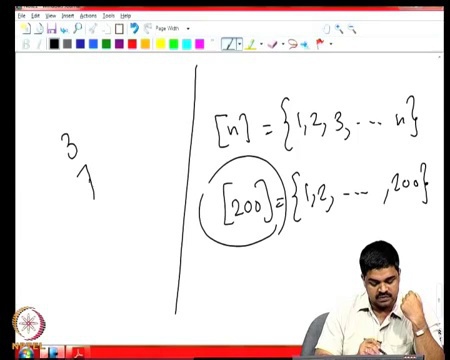 File Edit View Insert Actions Tools Help
Page Width
3
[n] = {1, 2, 3, ... n}
[200] = {1, 2, ..., 200}